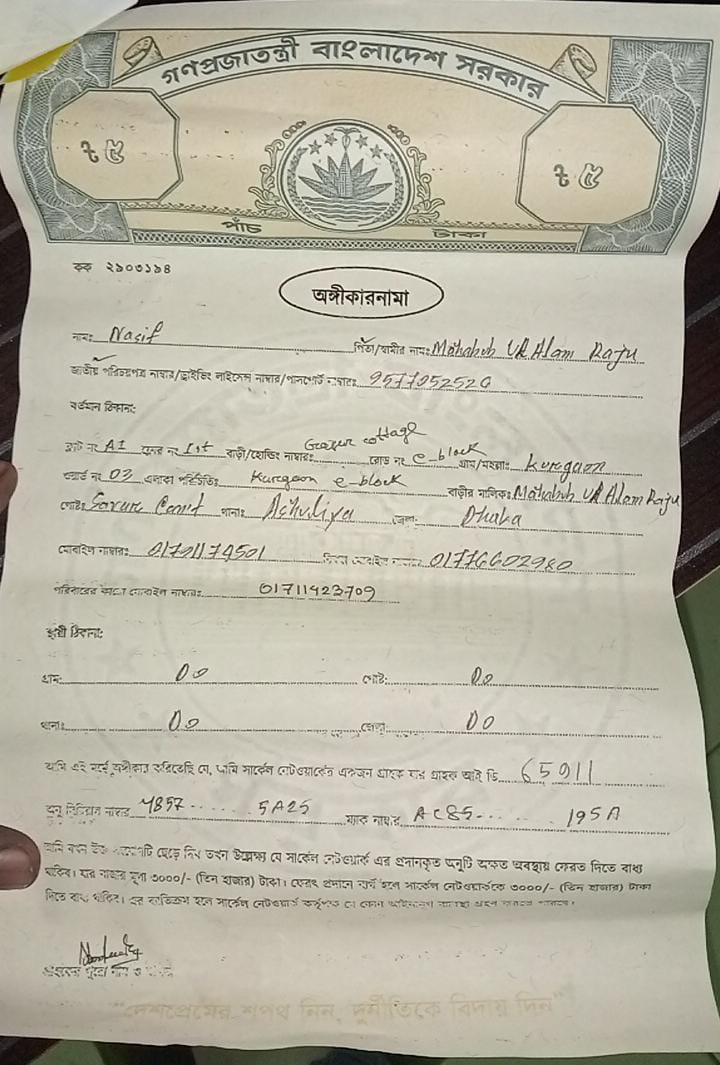 গণপ্রজাতন্ত্রী বাংলাদেশ সরকার
৳ ৫ ৳ ৫
পাঁচ টাকা
কক ২৯০৩১৯৪
অঙ্গীকারনামা
নাম: Nasif পিতা/স্বামীর নাম: Mahabub UR Alam Raju
জাতীয় পরিচয়পত্র নাম্বার/ড্রাইভিং লাইসেন্স নাম্বার/পাসপোর্ট নাম্বার: 9577052520
বর্তমান ঠিকানা:
ফ্লাট নং A1 নং 1st বাড়ী/হোল্ডিং নাম্বার: cottage রোড নং e-block গ্রাম/মহল্লা: Kurgaon
ওয়ার্ড নং 03 এলাকা পরিচিতি: Kurgaon e-block বাড়ীর মালিক: Mahabub UR Alam Raju
পোষ্ট: Savar Cant থানা: Ashuliya জেলা: Dhaka
মোবাইল নাম্বার: 01791174501 01776602980
পরিবারের মোবাইল নাম্বার: 01711423709
স্থায়ী ঠিকানা:
গ্রাম: Do পোষ্ট: Do
থানা: Do জেলা: Do
আমি এই মর্মে অঙ্গীকার করিতেছি যে, আমি সার্কেল নেটওয়ার্কের একজন গ্রাহক যার গ্রাহক আই ডি 65911
অনু সিরিয়াল নাম্বার 4857 ...... 5A25 ম্যাক নাম্বার AC85 ...... 195A
আমি যখন উক্ত ছেড়ে দিব তখন উল্লেক্ষ্য যে সার্কেল নেটওয়ার্ক এর প্রদানকৃত অনুটি অক্ষত অবস্থায় ফেরত দিতে বাধ্য
থাকিব। যার বাজার মূল্য ৩০০০/- (তিন হাজার) টাকা। ফেরৎ প্রদানে ব্যর্থ হলে সার্কেল নেটওয়ার্ককে ৩০০০/- (তিন হাজার) টাকা
দিতে বাধ্য থাকিব। এর ব্যতিক্রম হলে সার্কেল নেটওয়ার্ক কর্তৃপক্ষ যে কোন আইনানুগ ব্যবস্থা গ্রহণ করতে পারবে।
গ্রাহকের পুরো নাম ও
"দেশপ্রেমের শপথ নিন, দুর্নীতিকে বিদায় দিন"